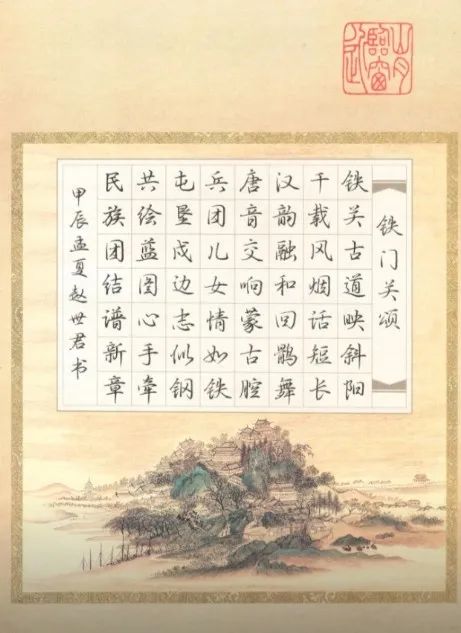 山月臨窗近
铁门关颂
铁关古道映斜阳
千载风烟话短长
汉韵融和回鹘舞
唐音交响蒙古腔
兵团儿女情如铁
屯垦戍边志似钢
共绘蓝图心手牵
民族团结谱新章
甲辰孟夏赵世君书